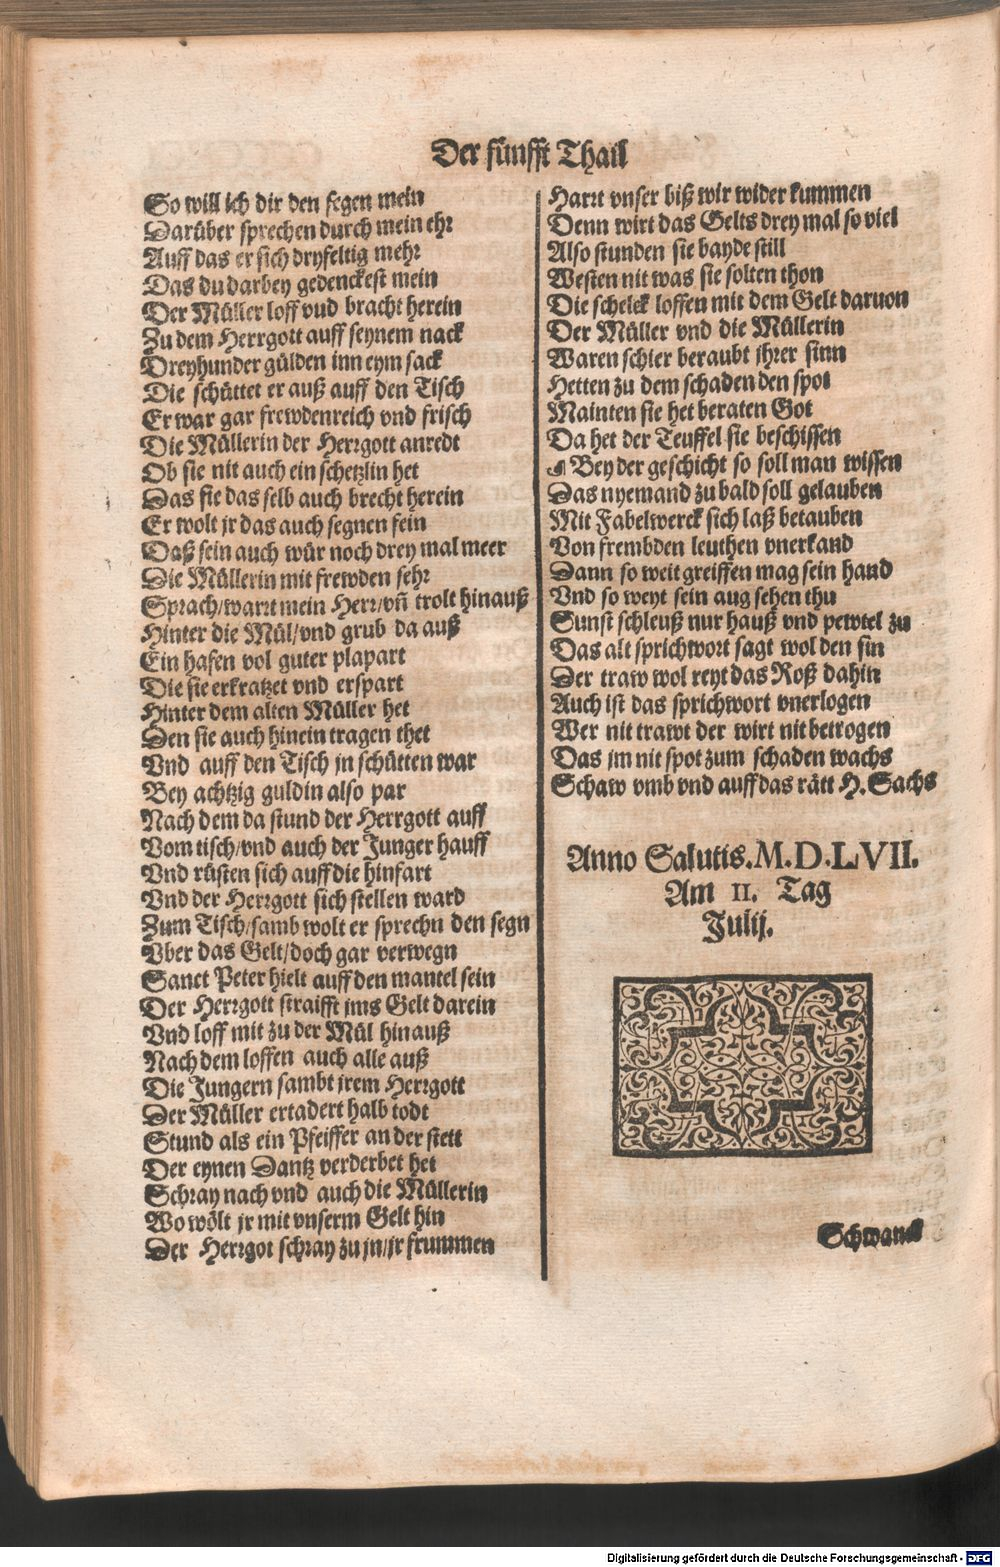 Der fünfft Thail
So will ich dir den segen mein
Darüber sprechen durch mein ehr
Auff das er sich dryfeltig mehr
Das du darbey gedenckest mein
Der Müller loff vnd bracht herein
Zu dem Herrgott auff seynem nack
Dreyhunder gülden inn eym sack
Die schüttet er auß auff den Tisch
Er war gar frewdenreich vnd frisch
Die Müllerin der Herrgott anredt
Ob sie nit auch ein schetzlin het
Das sie das selb auch brecht herein
Er wolt jr das auch segnen fein
Daß sein auch wür noch drey mal meer
Die Müllerin mit frewden sehr
Sprach/wart mein Herr/vñ trolt hinauß
Hinter die Mül/vnd grub da auß
Ein hafen vol guter plapart
Die sie erkratzet vnd erspart
Hinter dem alten Müller het
Den sie auch hinein tragen thet
Vnd auff den Tisch jn schütten war
Bey achtzig guldin also par
Nach dem da stund der Herrgott auff
Vom tisch/vnd auch der Junger hauff
Vnd rüsten sich auff die hinfart
Vnd der Herrgott sich stellen ward
Zum Tisch/samb wolt er sprechn den segn
Vber das Gelt/doch gar verwegn
Sanct Peter hielt auff den mantel sein
Der Herrgott straifft jms Gelt darein
Vnd loff mit zu der Mül hinauß
Nach dem loffen auch alle auß
Die Jungern sambt jrem Herrgott
Der Müller ertadert halb todt
Stund als ein Pfeiffer an der stett
Der eynen Dantz verderbet het
Schray nach vnd auch die Müllerin
Wo wölt jr mit vnserm Gelt hin
Der Herrgot schray zu jn/jr frummen
Harrt vnser biß wir wider kummen
Denn wirt das Gelts drey mal so viel
Also stunden sie bayde still
Westen nit was sie solten thon
Die schelck loffen mit dem Gelt daruon
Der Müller vnd die Müllerin
Waren schier beraubt jhrer sinn
Hetten zu dem schaden den spot
Mainten sie het beraten Got
Da het der Teuffel sie beschissen
☙ Bey der geschicht so soll man wissen
Das nyemand zu bald soll gelauben
Mit Fabelwerck sich laß betauben
Von frembden leuthen vnerkand
Dann so weit greiffen mag sein hand
Vnd so weyt sein aug sehen thu
Sunst schleuß nur hauß vnd pewtel zu
Das alt sprichwort sagt wol den sin
Der traw wol reyt das Roß dahin
Auch ist das sprichwort vnerlogen
Wer nit trawt der wirt nit betrogen
Das jm nit spot zum schaden wachs
Schaw vmb vnd auff das rätt H. Sachs
Anno Salutis. M. D. L VII.
Am II. Tag
Julij.
Schwanck
Digitalisierung gefördert durch die Deutsche Forschungsgemeinschaft - DFG